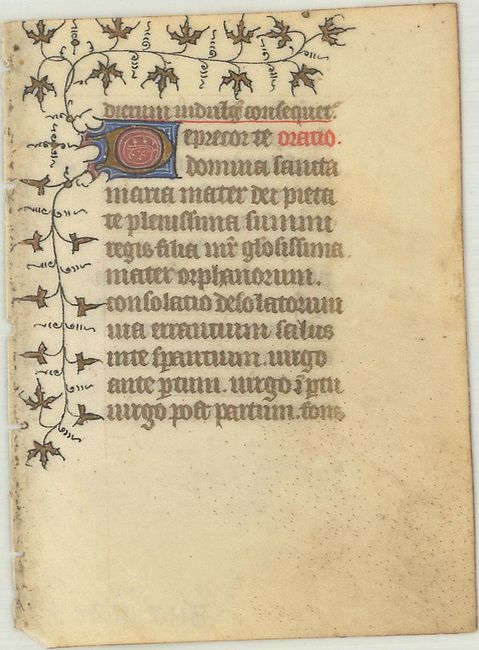 dictum indulg consequet.
Deprecor te oratio.
domina sancta
maria mater dei pieta
te plenissima summi
regis filia mr glosissima
mater orphanorum.
consolatio desolatorum
uia errantium salus
inte sperantium. uirgo
ante ptum. uirgo i ptu
uirgo post partum. fons